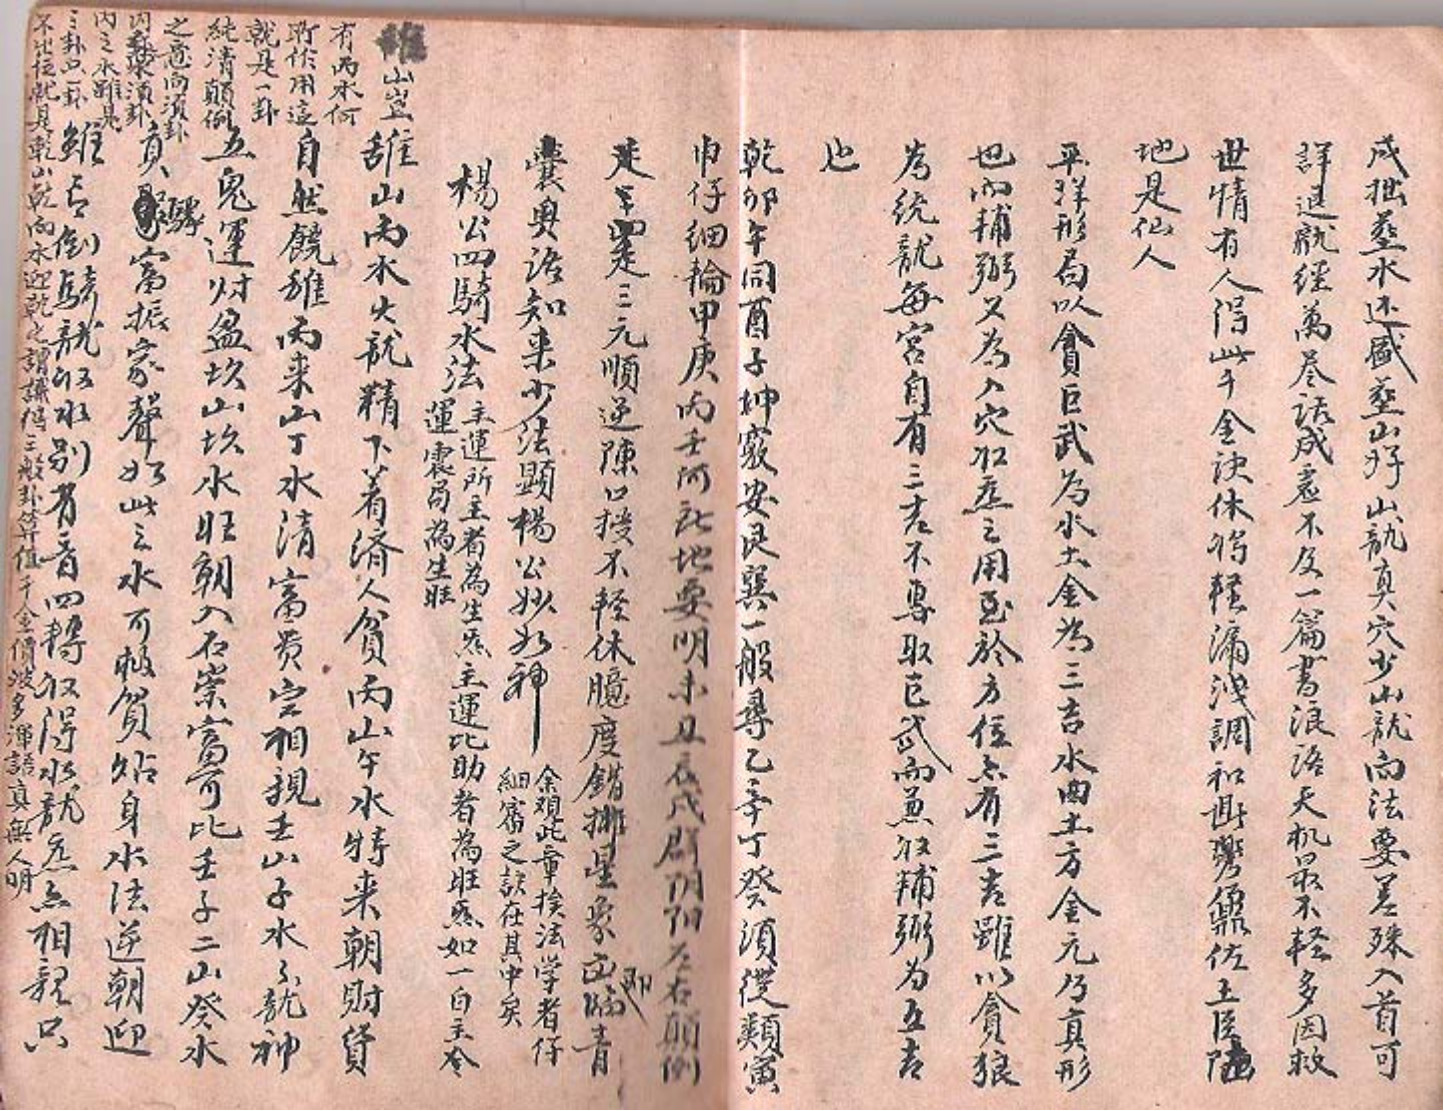 成拙葬水还盛葬山好山龍真穴少山龍向法要差殊入首可
詳退龍經萬卷話成裏不及一篇書浪語天机最不輕多因救
世情有人得此千金決休將輕漏洩調和鼎鼐佐王臣陸
地是仙人
平洋形局以貪巨武为水土金為三吉水曲土方金元乃真形
也而輔弼又为入穴收氣之用至於方位亦有三吉雖以貪狼
为統龍每宮自有三吉不專取巨武而兼收輔弼为五吉
也
乾卯午同酉子坤竅安艮巽一般尋乙辛丁癸須從類寅
巾仔細輪甲庚丙壬何砒地要明未丑辰戌辟阴阳左右顛倒
走三罡走三元順逆陳口授不輕休臆度錯排星象凶臨青
囊奥語知来少法顯楊公妙如神
余观此章挨法学者仔
細審之訣在其中矣
楊公四騎水法
主運所主者為生氣主運比助者為旺氣如一白主令
運震局為生旺
離山丙水火龍精下着済人貧丙山午水特来朝財貨
自然饒離丙来山丁水清富贵定相親壬山子水亦龍神
五鬼運财盈坎山坎水旺朝入石崇富可比壬子二山癸水
真驛富振家聲如此之水可极贫站身水法逆朝迎
雖言倒騎龍收水别有音四轉收得水龍氣亦相親只
離山豈
有丙水何
所作用這
就是一卦
純清顛倒
之意向須卦
内裝須卦
内之水雖是
三卦只一卦
不出位就是乾山乾向水迎乾之謂議得三般卦算值千金價波多渾語真無人明